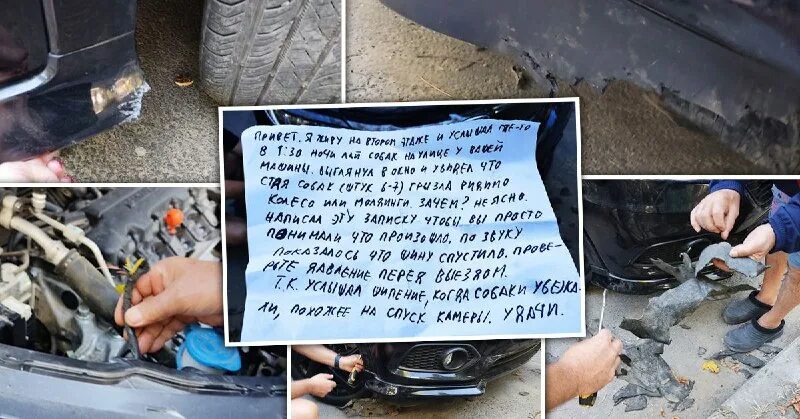 ПРИВЕТ. Я ЖИВУ НА ВТОРОМ ЭТАЖЕ И УСЛЫШАЛ ГДЕ-ТО
В 1:30 НОЧИ ЛАЙ СОБАК НА УЛИЦЕ У ВАШЕЙ
МАШИНЫ. ВЫГЛЯНУЛ В ОКНО И УВИДЕЛ ЧТО
СТАЯ СОБАК (ШТУК 6-7) ГРЫЗЛА ВИДИМО
КОЛЕСО ИЛИ МОЛДИНГИ. ЗАЧЕМ? НЕ ЯСНО.
НАПИСАЛ ЭТУ ЗАПИСКУ ЧТОБЫ ВЫ ПРОСТО
ПОНИМАЛИ ЧТО ПРОИЗОШЛО. ПО ЗВУКУ
ПОКАЗАЛОСЬ ЧТО ШИНУ СПУСТИЛО. ПРОВЕ-
РЬТЕ ДАВЛЕНИЕ ПЕРЕД ВЫЕЗДОМ.
Т.К. УСЛЫШАЛ ШИПЕНИЕ, КОГДА СОБАКИ УБЕЖА-
ЛИ, ПОХОЖЕЕ НА СПУСК КАМЕРЫ. УДАЧИ.